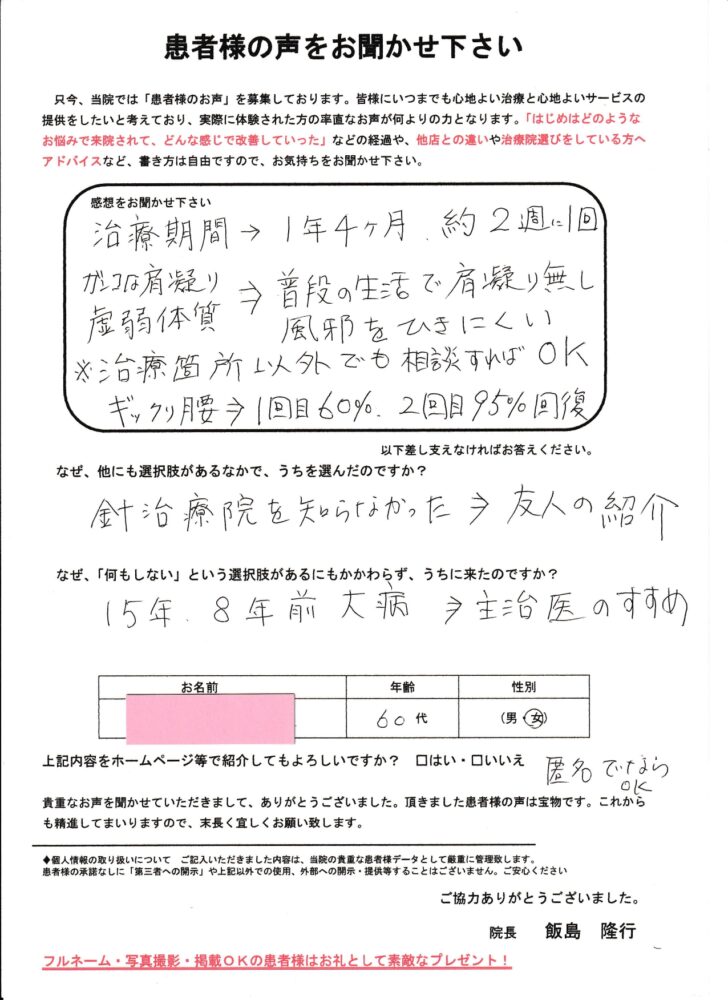 患者様の声をお聞かせ下さい
只今、当院では「患者様のお声」を募集しております。皆様にいつまでも心地よい治療と心地よいサービスの
提供をしたいと考えており、実際に体験された方の率直なお声が何よりの力となります。「はじめはどのような
お悩みで来院されて、どんな感じで改善していった」などの経過や、他店との違いや治療院選びをしている方へ
アドバイスなど、書き方は自由ですので、お気持ちをお聞かせ下さい。
感想をお聞かせ下さい
治療期間→1年4ヶ月.約2週に1回
ガンコな肩凝り
虚弱体質
⇒普段の生活で肩凝り無し
風邪をひきにくい
※治療箇所以外でも相談すればOK
ギックリ腰⇒1回目60%.2回目95%回復
以下差し支えなければお答えください。
なぜ、他にも選択肢があるなかで、うちを選んだのですか？
針治療院を知らなかった⇒友人の紹介
なぜ、「何もしない」という選択肢があるにもかかわらず、うちに来たのですか？
15年.8年前大病⇒主治医のすすめ
お名前 年齢 性別
60代 (男・女)
上記内容をホームページ等で紹介してもよろしいですか？ □はい・□いいえ
匿名でなら
OK
貴重なお声を聞かせていただきまして、ありがとうございました。頂きました患者様の声は宝物です。これから
も精進してまいりますので、末長く宜しくお願い致します。
◆個人情報の取り扱いについて ご記入いただきました内容は、当院の貴重な患者様データとして厳重に管理致します。
患者様の承諾なしに「第三者への開示」や上記以外での使用、外部への開示・提供等することはございません。ご安心ください
ご協力ありがとうございました。
院長 飯島 隆行
フルネーム・写真撮影・掲載ＯＫの患者様はお礼として素敵なプレゼント！